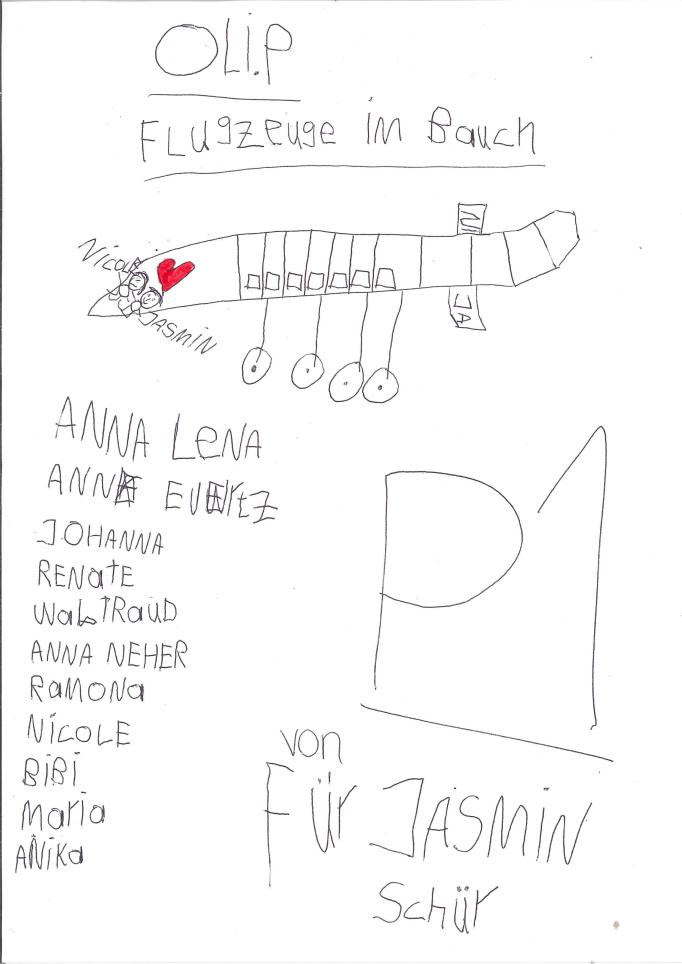 OLi.P
FLUgzeuge im Bauch
Nicole
JASMiN
NI
JA
ANNA LeNA
ANNA
JOHANNA
RENatE
WaLTRauD
ANNA NEHER
RaMONa
NiCOLE
BiBi
Maria
ANiKa
P1
von
FÜr JASMiN
Schür